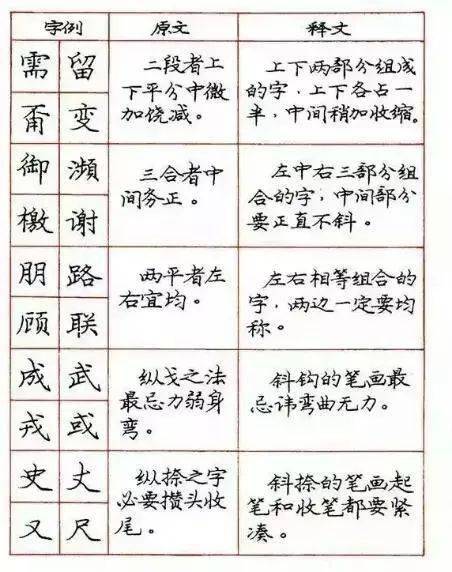 字例 原文 释文
需 留
变
二段者上
下平分中微
加饶减。
上下两部分组成
的字，上下各占一
半，中间稍加收缩。
御 濒
檄 谢
三合者中
间务正。
左中右三部分组
合的字，中间部分
要正直不斜。
朋 路
顾 联
两平者左
右宜均。
左右相等组合的
字，两边一定要均
称。
成 武
戎 或
纵戈之法
最忌力弱身
弯。
斜钩的笔画最
忌讳弯曲无力。
史 丈
又 尺
纵捺之字
必要攒头收
尾。
斜捺的笔画起
笔和收笔都要紧
凑。